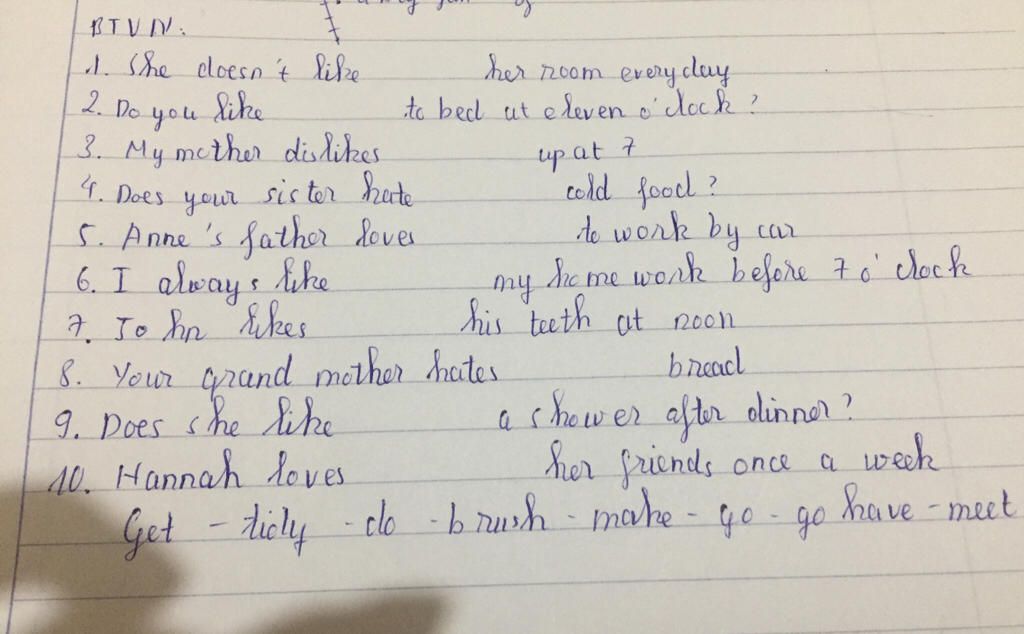 BTVN:
1. She doesn't like her room everyday
2. Do you like to bed at eleven o'clock?
3. My mother dislikes up at 7
4. Does your sister hate cold food?
5. Anne's father loves to work by car
6. I always like my home work before 7 o'clock
7. John likes his teeth at noon
8. Your grand mother hates bread
9. Does she like a shower after dinner?
10. Hannah loves her friends once a week
Get - tidy - do - brush - make - go - go have - meet